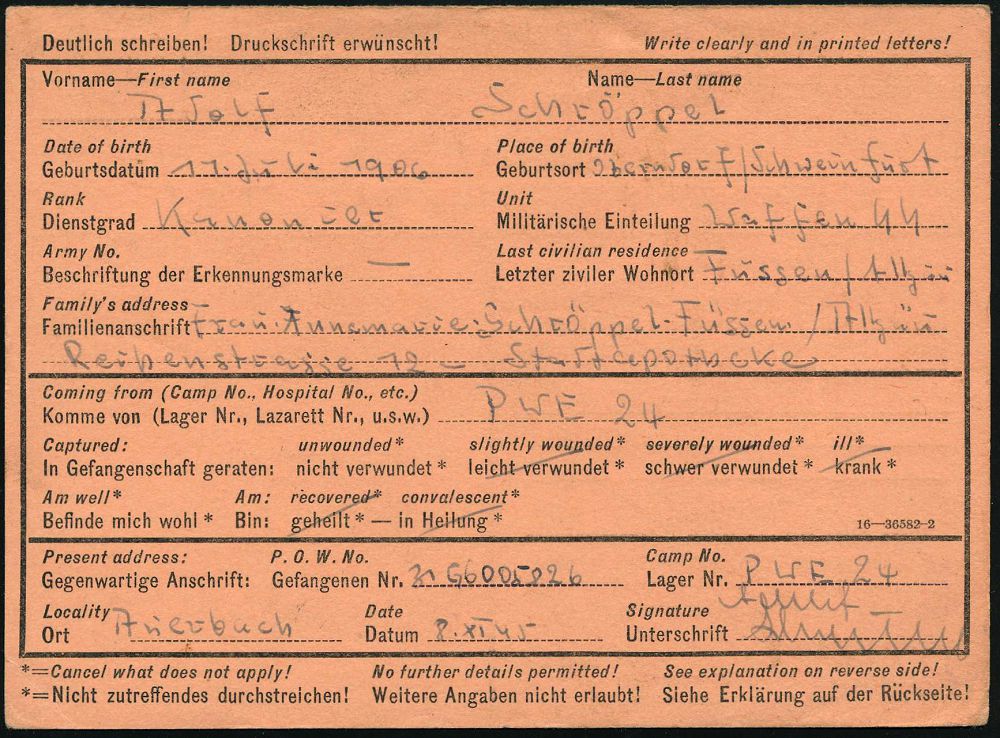 Deutlich schreiben! Druckschrift erwünscht! Write clearly and in printed letters!
Vorname—First name Name—Last name
Adolf Schröppel
Date of birth Place of birth
Geburtsdatum 11. Juli 1906 Geburtsort Oberndorf/Schweinfurt
Rank Unit
Dienstgrad Kanonier Militärische Einteilung Waffen SS
Army No. Last civilian residence
Beschriftung der Erkennungsmarke — Letzter ziviler Wohnort Füssen/Allgäu
Family's address
Familienanschrift Frau Annemarie Schröppel-Füssen/Allgäu
12 – Stadtapotheke
Coming from (Camp No., Hospital No., etc.)
Komme von (Lager Nr., Lazarett Nr., u.s.w.) PWE 24
Captured: unwounded* slightly wounded* severely wounded* ill*
In Gefangenschaft geraten: nicht verwundet* leicht verwundet* schwer verwundet* krank*
Am well* Am: recovered* convalescent*
Befinde mich wohl* Bin: geheilt* — in Heilung*
16—36582-2
Present address: P.O.W. No. Camp No.
Gegenwartige Anschrift: Gefangenen Nr. 31 G6005826 Lager Nr. PWE 24
Locality Date Signature
Ort Auerbach Datum 8.XI 45 Unterschrift
*=Cancel what does not apply! No further details permitted! See explanation on reverse side!
*=Nicht zutreffendes durchstreichen! Weitere Angaben nicht erlaubt! Siehe Erklärung auf der Rückseite!